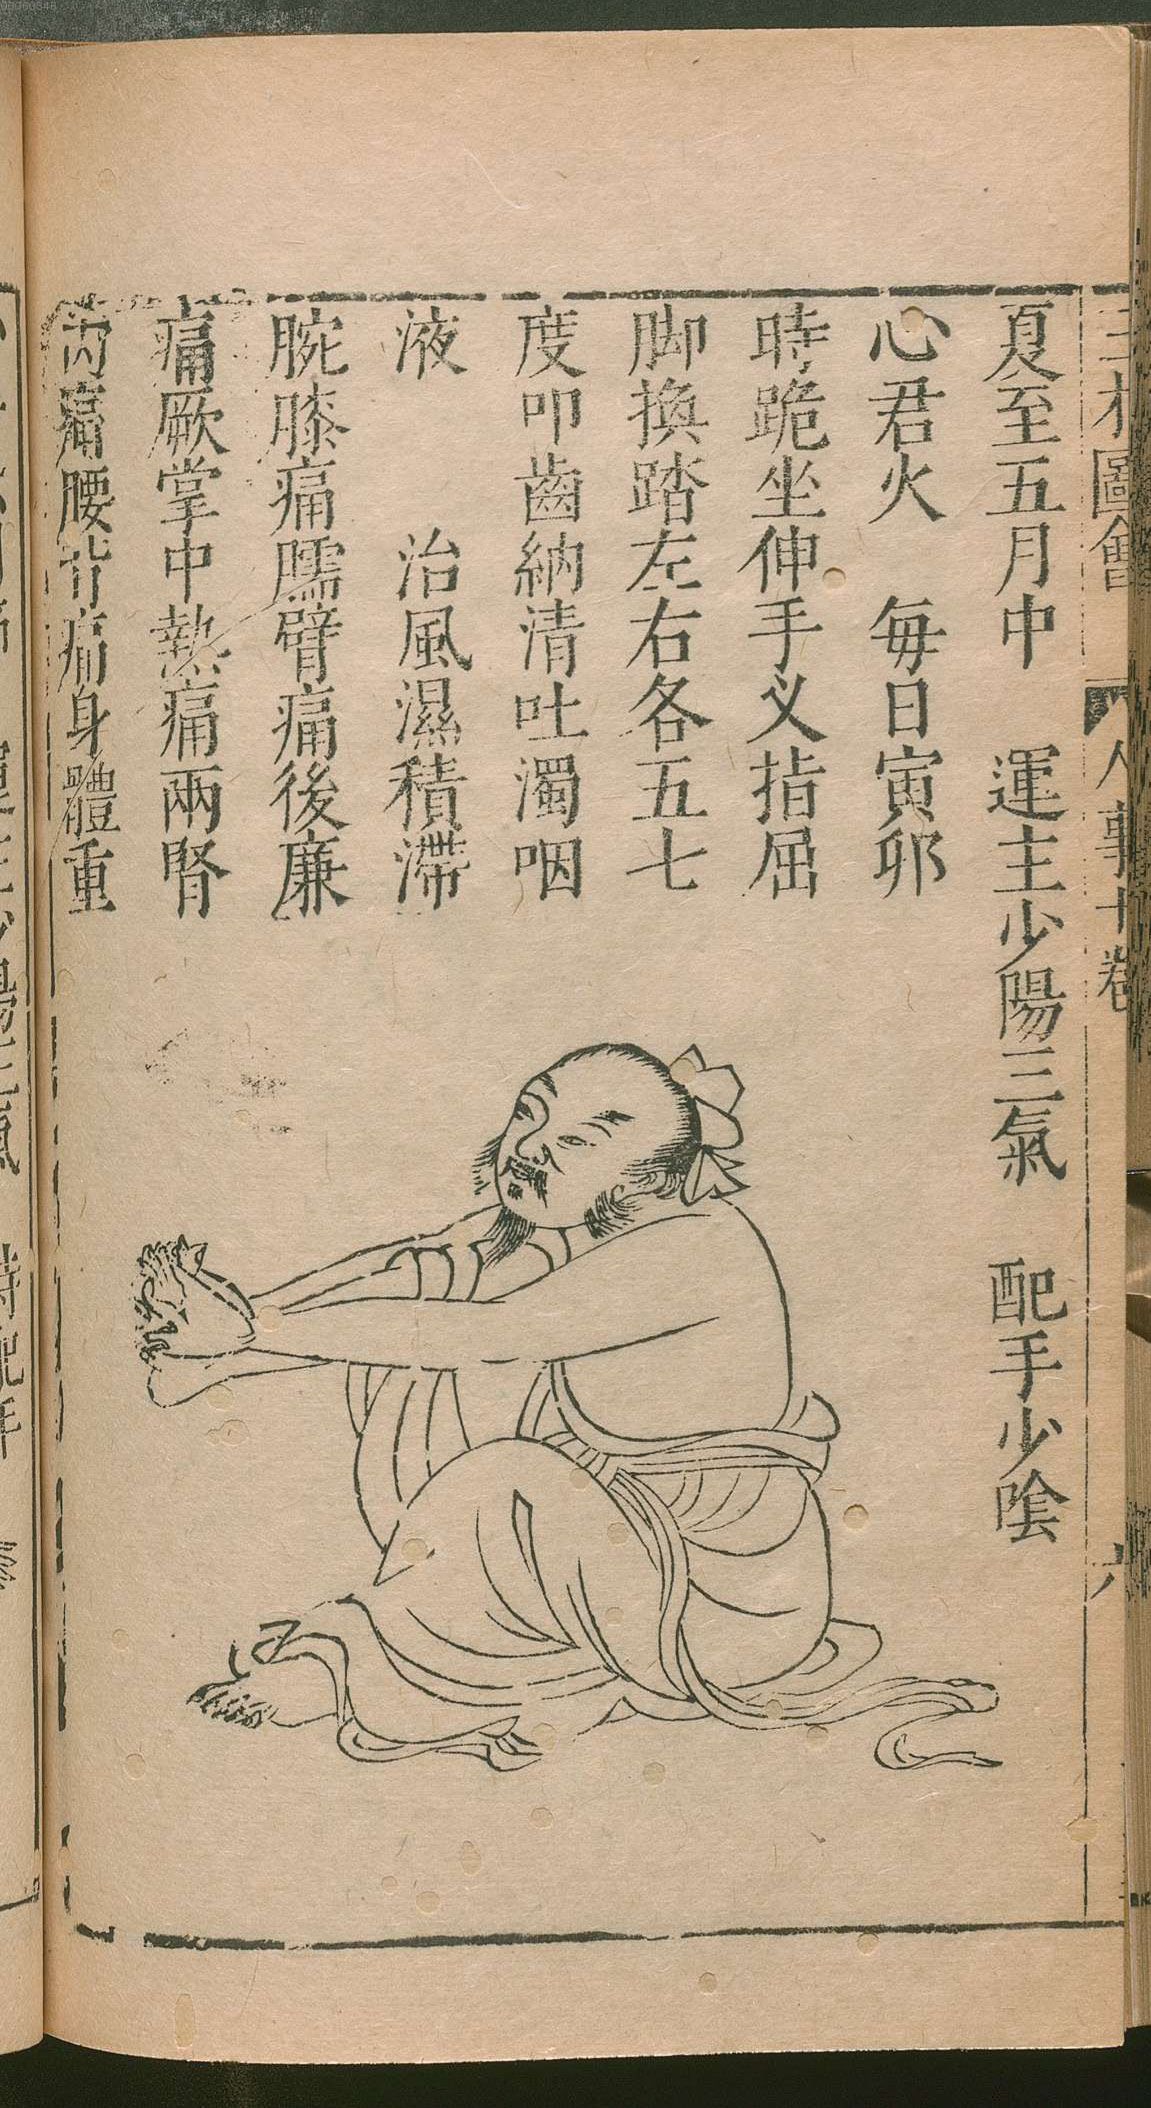 夏至五月中　運主少陽三氣　配手少陰
心君火　毎日寅卯
時跪坐伸手义指屈
脚換踏左右各五七
度叩齒納清吐濁咽
液　治風濕積滯
腕膝痛臑臂痛後廉
痛厥掌中熱痛兩腎
内痛腰背痛身體重
三才圖會　人事十卷　六